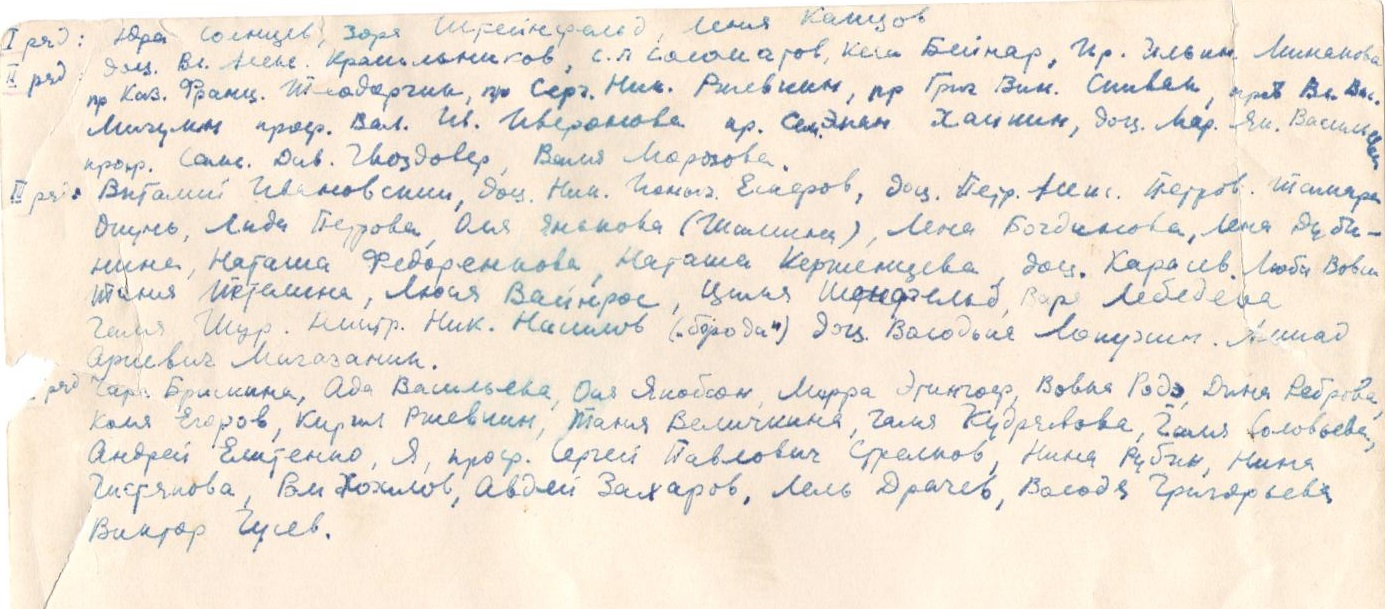 I ряд: Юра Солнцев, Заря Штейнфельд, Леня Канцов
II ряд: доц. Вл. Алекс. Красильников, С.П. Соломатов, Ким Бейнар, Ир. Ильин. Минакова
пр. Каз. Франц. Теодорчик, пр. Серг. Ник. Ржевкин, пр. Григ. Вен. Спивак, Вл. Вас.
Мигулин проф. Вал. Ив. Иверонова пр. Сем. Эман. Хайкин, доц. Мар. Як. Васильева
проф. Самс. Дав. Гвоздовер, Валя Морозова.
III ряд: Виталий Ивановский, доц. Ник. Ионыч. доц. Петр. Алекс. Петров. Тамара
Окунь, Лида Петрова, Оля Янькова (Шамина), Лена Богданкова, Лена Дуби-
нина, Наташа Федоренкова, Наташа Керженцева, доц. Карасев. Люба Вовси
Таня Люся Вайнрос, Циля Шенфельд, Варя Лебедева
Галя Шур. Ник. („борода“) доц. Володья Лопухин.
Ариевич Мигазаник.
ряд Брискина, Ада Васильева, Оля Якобсон, Мирра Эгингоф, Вовка Родэ, Дина Реброва,
Коля Егоров, Кирил Ржевкин, Таня Величкина, Галя Кудрявова, Галя Соловьева,
Андрей Елистенко, Я, проф. Сергей Павлович Стрелков, Нина Рубин, Нина
Чистякова, Рэм Хохлов, Авдей Захаров, Лель Драчев, Володя Григорьева
Виктор Гусев.